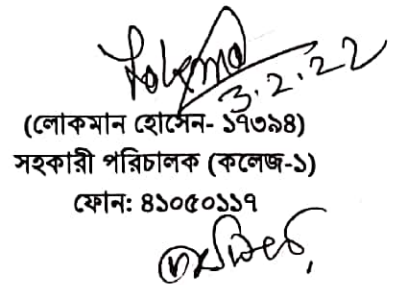 3.2.22
(লোকমান হোসেন- ১৭৩৯৪)
সহকারী পরিচালক (কলেজ-১)
ফোন: ৪১০৫০১১৭